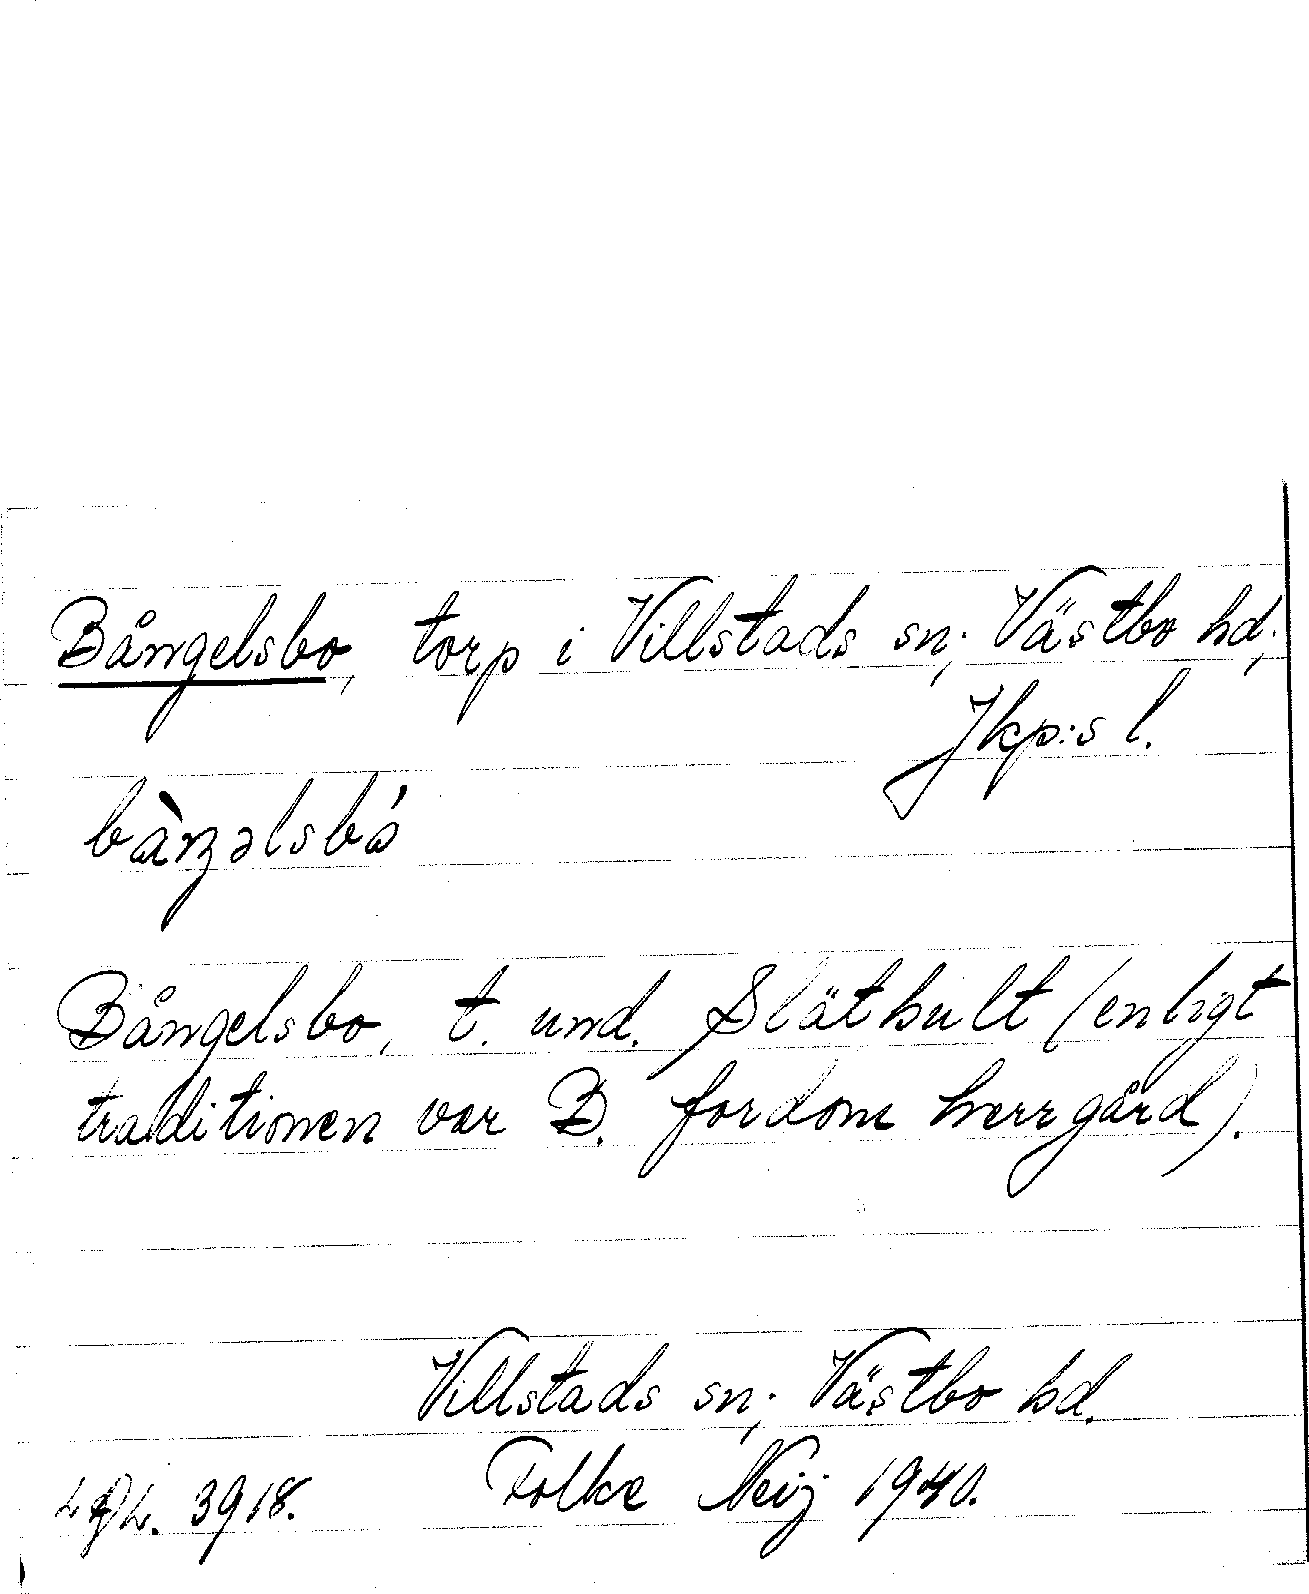 Bångelsbo, torp i Villstads sn., Västbo hd.,
Jkp:s l.
bàŋəlsbó
Bångelsbo, t. und. Släthult (enligt
traditionen var B. fordom herrgård).
Villstads sn., Västbo hd.
Folke Neij 1940.
3918.